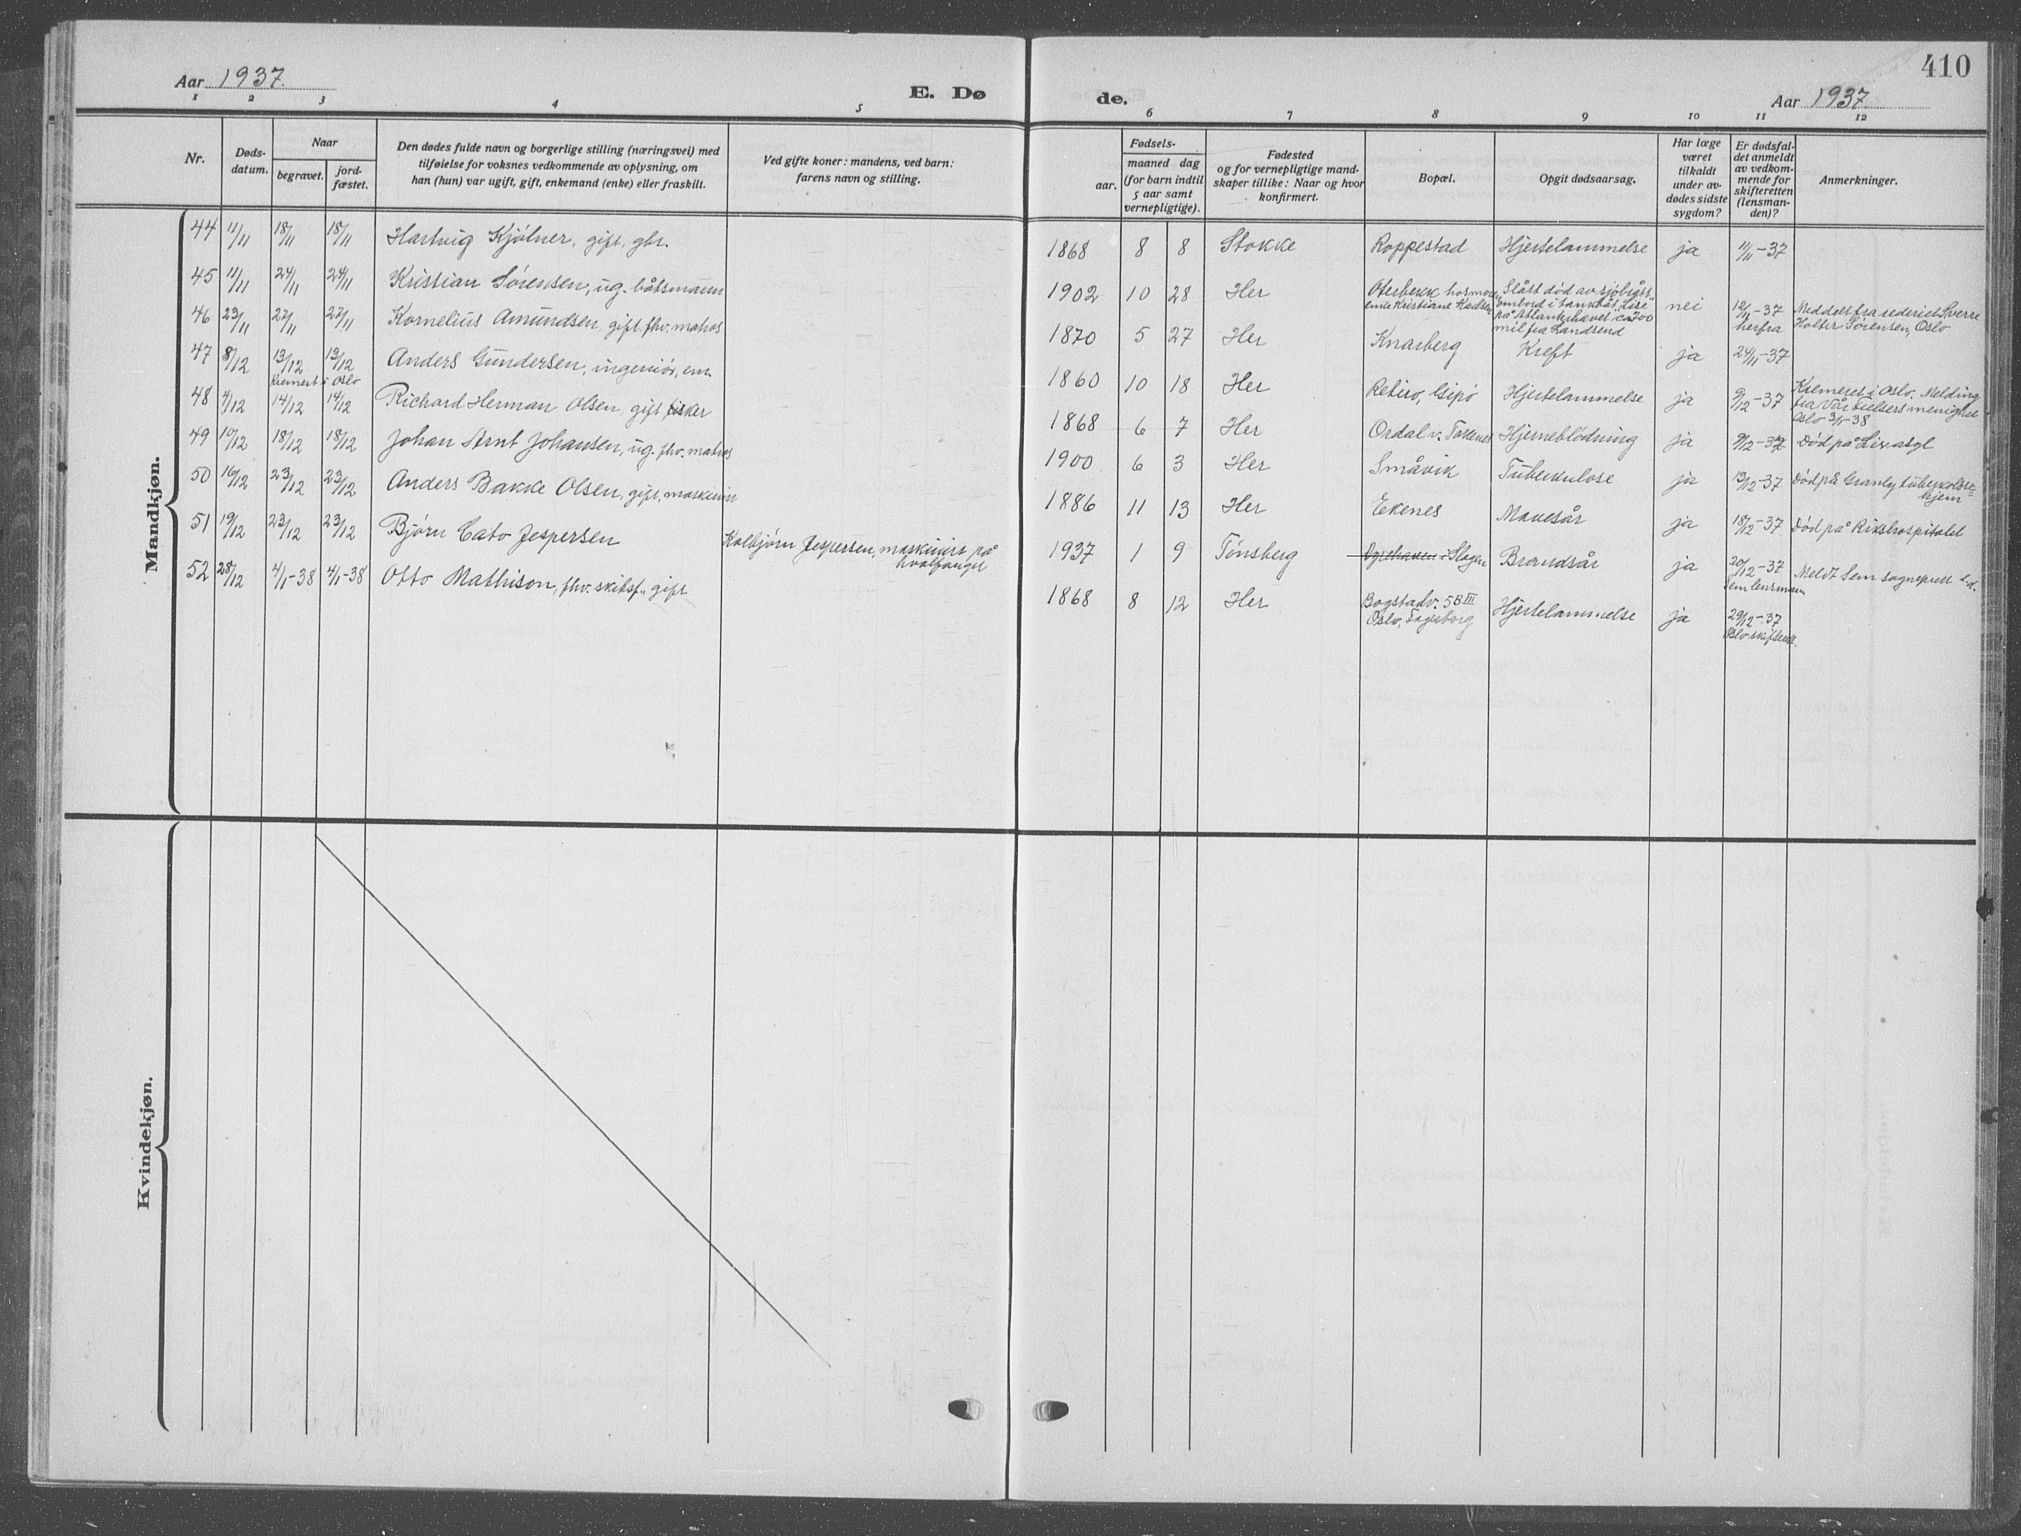 410
Aar 1937.
E. Dø
de.
Aar 1937.
1 2 3 4 5 6 7 8 9 10 11 12
Nr.
Døds-
datum.
Naar
begravet.
jord-
fæstet.
Den dødes fulde navn og borgerlige stilling (næringsvei) med
tilføielse for voksnes vedkommende av oplysning, om
han (hun) var ugift, gift, enkemand (enke) eller fraskilt.
Ved gifte koner: mandens, ved barn:
farens navn og stilling.
Fødsels-
aar.
maaned dag
(for barn indtil
5 aar samt
vernepligtige).
Fødested
og for vernepligtige mand-
skaper tillike: Naar og hvor
konfirmert.
Bopæl.
Opgit dødsaarsag.
Har læge
været
tilkaldt
under av-
dødes sidste
sygdom?
Er dødsfal-
det anmeldt
av vedkom-
mende for
skifteretten
(lensman-
den)?
Anmerkninger.
Mandkjøn.
44 11/11 18/11 18/11 Hartvig Kjølner, gift, gbr.
1868 8 8 Stokke Roppestad Hjertelammelse ja 11/11-37
45 11/11 24/11 24/11 Kristian Sørensen, ug. båtsmann
1902 10 28 Her Oterbekk hos mor
enke Kristiane Karlsen
Slått død av sjøbrått
ombord i tankbåt "Lise"
på Atlanterhavet ca 200
mil fra Landsend
nei 12/11-37
herfra
Meddelt fra rederiet Sverre
Holter Sørensen, Oslo
46 23/11 27/11 27/11 Kornelius Amundsen, gift, fhv. matros
1870 5 27 Her Knarberg Kreft ja 24/11-37
47 8/12 13/12 13/12 Anders Gundersen, ingeniør, em.
Kremert i Oslo
1860 10 18 Her Retiro, Gipø Hjertelammelse ja 9/12-37
Kremeret i Oslo. Melding
fra Vår Frelsers menighet
Oslo 3/1-38
48 7/12 14/12 14/12 Richard Herman Olsen, gift, fisker
1868 6 7 Her Ordal v. Tokenes Hjerneblødning ja 9/12-37 Død på
49 10/12 18/12 18/12 Johan Arnt Johansen, ug. fhv. matros
1900 6 3 Her Småvik Tuberkulose ja 13/12-37 Død på Granly tuberkulose-
hjem
50 16/12 23/12 23/12 Anders Bakke Olsen, gift, maskinist
1886 11 13 Her Ekenes Mavesår ja 18/12-37 Død på Rikshospitalet
51 19/12 23/12 23/12 Bjørn Cato Jespersen
Kolbjørn Jespersen, maskinist på
hvalfanger
1937 1 9 Tønsberg Slagen Brandsår ja 20/12-37
Sem lensmann
Meldt Sem sogneprest s.d.
52 28/12 4/1-38 4/1-38 Otto Mathison, fhv. skibsf., gift
1868 8 12 Her Bogstadv. 58 III
Oslo, Fagerborg
Hjertelammelse ja 29/12-37
Oslo skifterett.
Kvindekjøn.